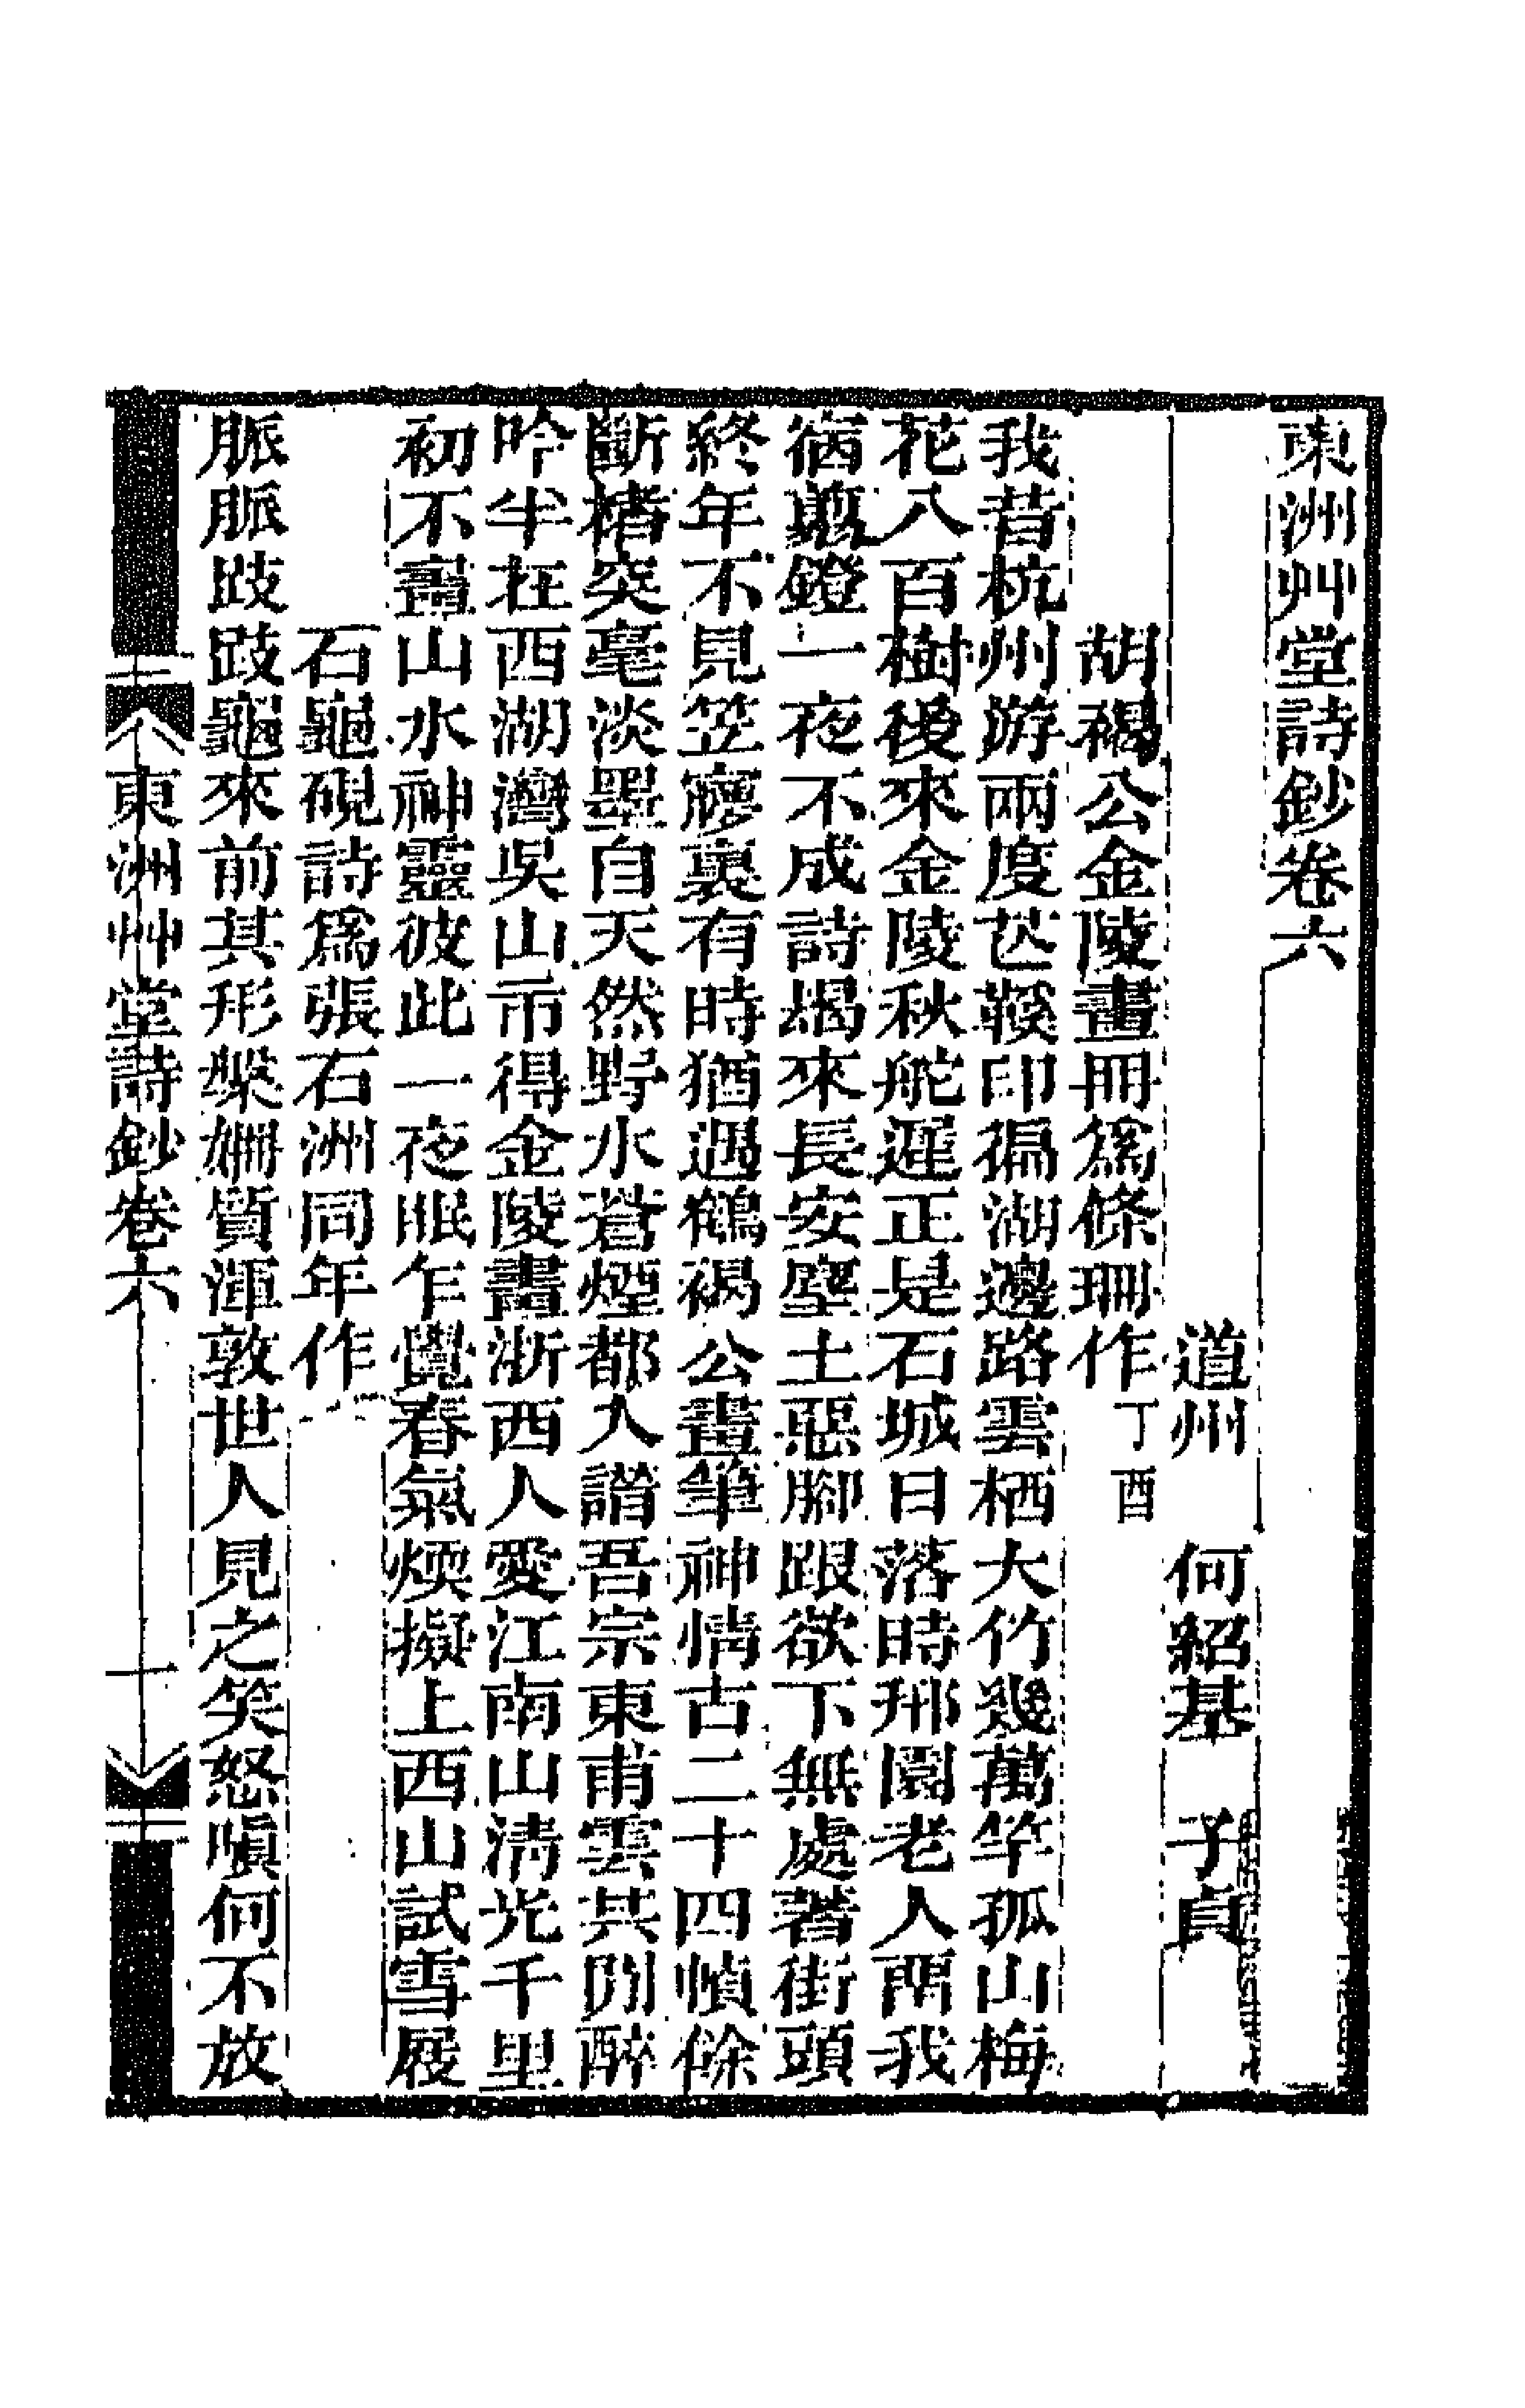 東洲艸堂詩鈔卷六
道州 何紹基 子貞
胡褐公金陵畫冊為條珊作丁酉
我昔杭州游兩度芒鞵印徧湖邊路雲栖大竹幾萬竿孤山梅
花八百樹後來金陵秋舵遲正是石城日落時邢園老人鬲我
宿翦鐙一夜不成詩朅來長安塵土惡腳跟欲下無處著街頭
終年不見笠寢裏有時猶遇鶴褐公畫筆神情古二十四幀餘
斷楮突毫淡墨自天然野水蒼煙都入譜吾宗東甫雲其閒醉
吟半在西湖灣吳山市得金陵畫浙西人愛江南山淸光千里
初不畫山水神靈彼此一夜眠乍覺春氣煗擬上西山試雪屐
石龜硯詩為張石洲同年作
脈脈跂跂龜來前其形槃姍質渾敦世人見之笑怒嗔何不放
東洲艸堂詩鈔卷六 十